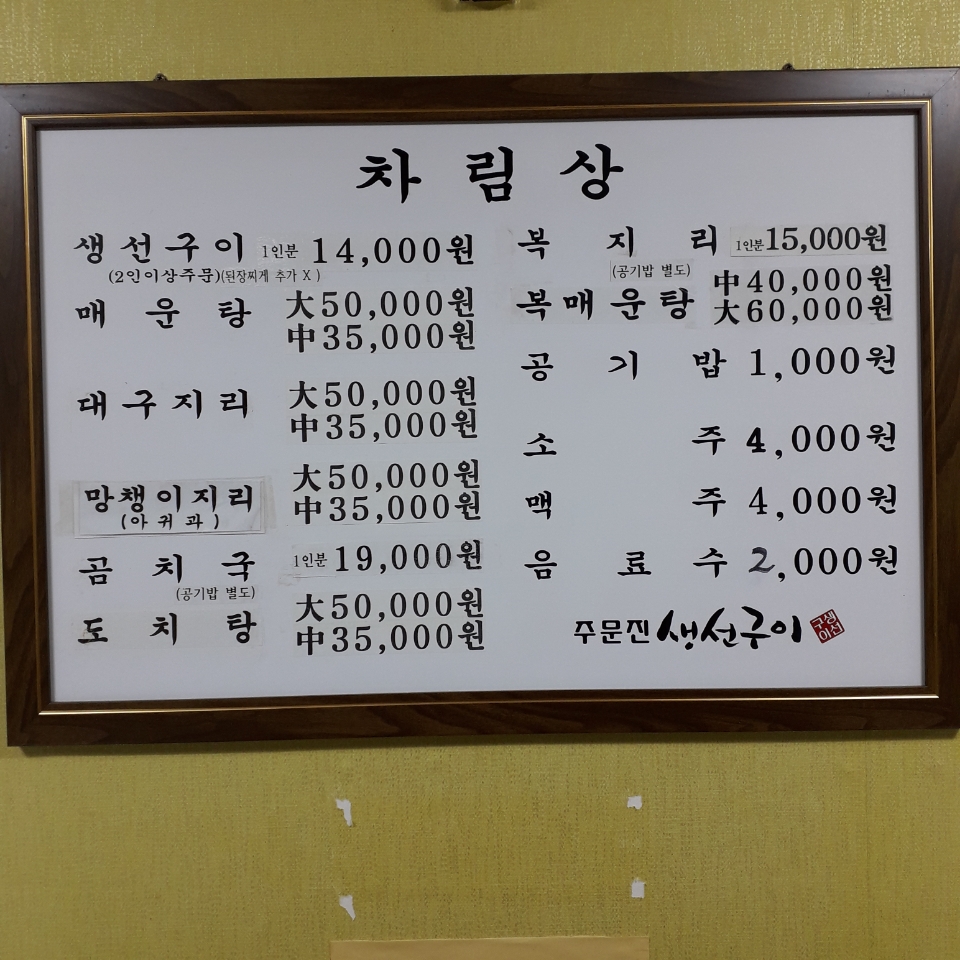 차림상
생선구이 1인분 14,000원
(2인이상주문)(된장찌게 추가 X)
매운탕 大50,000원
中35,000원
대구지리 大50,000원
中35,000원
망챙이지리 大50,000원
(아귀과) 中35,000원
곰치국 1인분 19,000원
(공기밥 별도)
도치탕 大50,000원
中35,000원
복지리 1인분 15,000원
(공기밥 별도)
복매운탕 中40,000원
大60,000원
공기밥 1,000원
소주 4,000원
맥주 4,000원
음료수 2,000원
주문진 생선구이
생선
구이